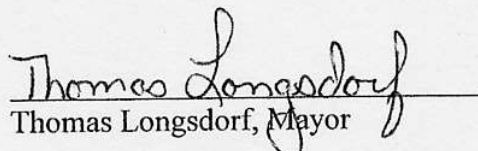 Thomas Longsdorf
Thomas Longsdorf, Mayor